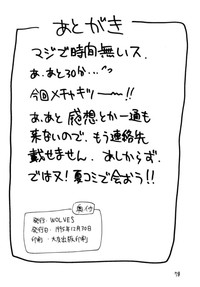 あとがき
マジで時間無いス、
あ、あと30分…
今回メチャギリー!!
あ、あと感想とか一通も
来ないので、もう連絡先
載せません。あしからず、
ではヌ!夏コミで会おう!!
奥付
発行: WOLVES
発行日: 1995年12月30日
印刷: 大友出版印刷